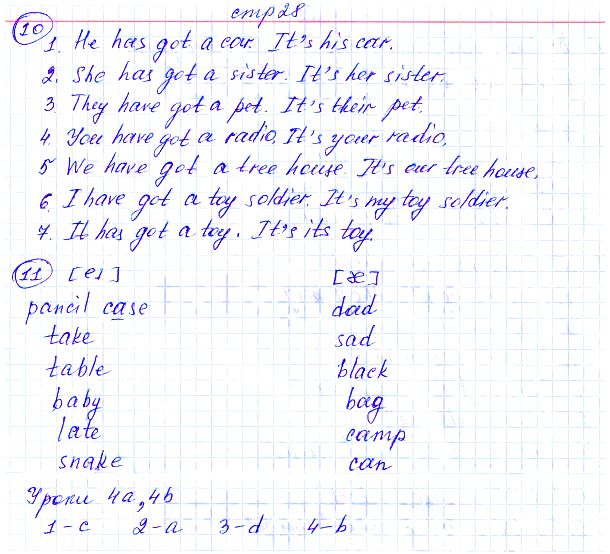 стр 28
10
1. He has got a car. It's his car.
2. She has got a sister. It's her sister.
3. They have got a pet. It's their pet.
4. You have got a radio. It's your radio.
5 We have got a tree house. It's our tree house.
6. I have got a toy soldier. It's my toy soldier.
7. It has got a toy. It's its toy.
11 [eı] [æ]
pancil case dad
take sad
table black
baby bag
late camp
snake can
Уроки 4a, 4b
1-c 2-a 3-d 4-b